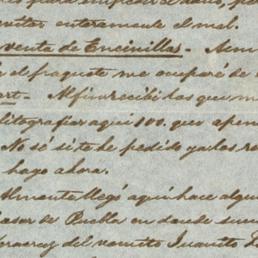 enteramente el mal.
venta de Encinillas.
el fraguete me ocuparé de
A fin recibidas que
litografiar aqui 100. que apen
No sé si te he pedido ya las
hago ahora.
Almonte llegó aqui hace algun
de Puebla en donde
Veracruz del vomito Juanito